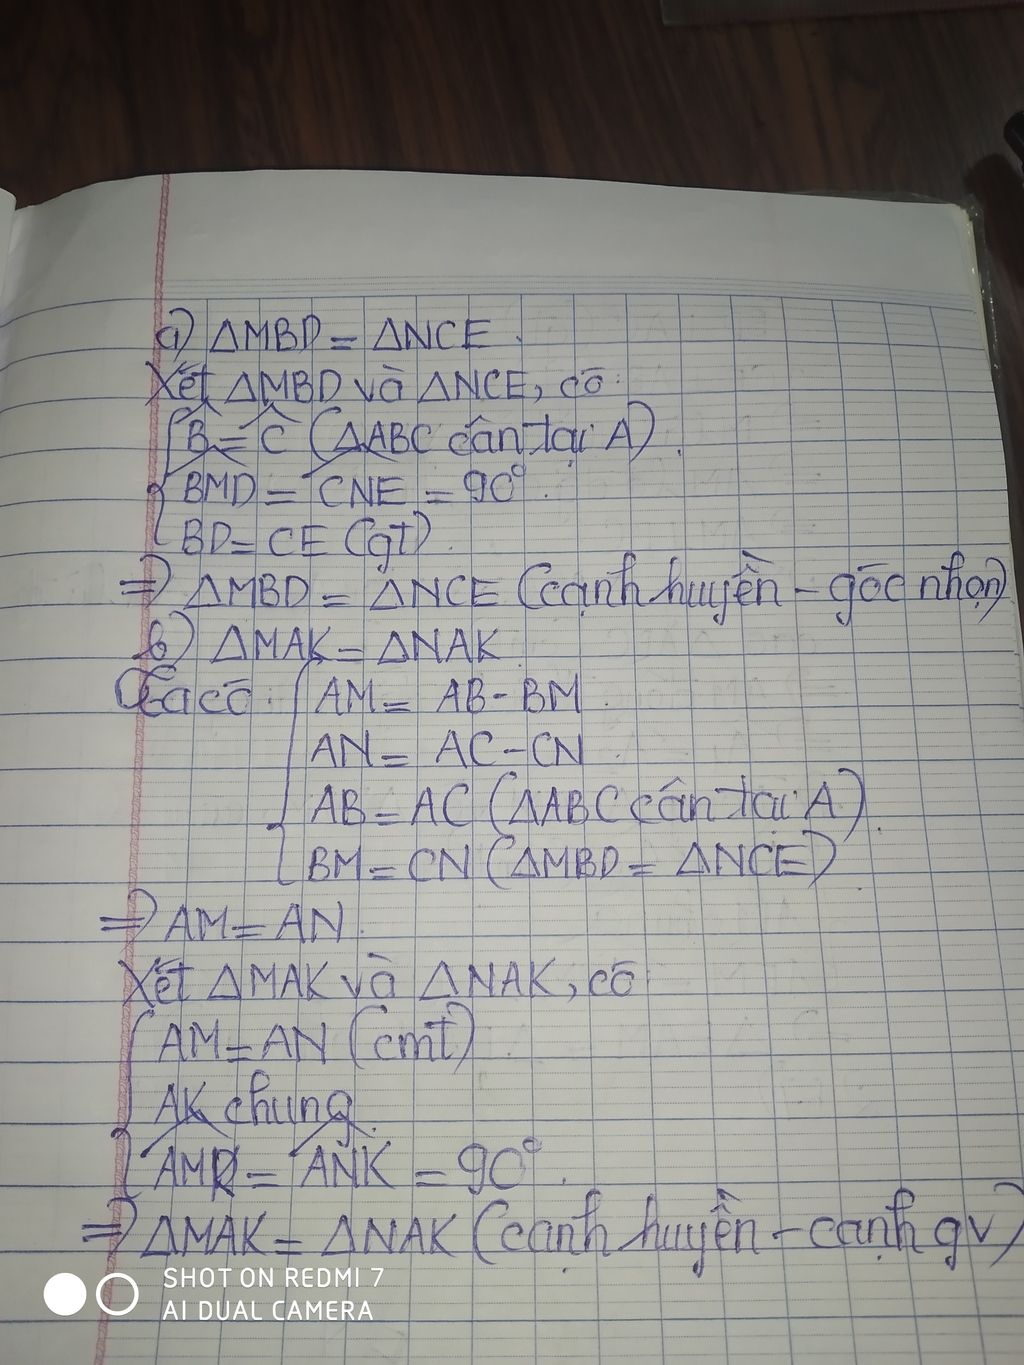 a) ΔMBD = ΔNCE.
Xét ΔMBD và ΔNCE, có:
B̂ = Ĉ (ΔABC cân tại A).
BMD = CNE = 90°.
BD = CE (gt).
=> ΔMBD = ΔNCE (cạnh huyền - góc nhọn)
b) ΔMAK = ΔNAK.
Ta có: AM = AB - BM.
AN = AC - CN.
AB = AC (ΔABC cân tại A).
BM = CN (ΔMBD = ΔNCE).
=> AM = AN.
Xét ΔMAK và ΔNAK, có:
AM = AN (cmt).
AK chung.
AMK = ANK = 90°.
=> ΔMAK = ΔNAK (cạnh huyền - cạnh gv)
SHOT ON REDMI 7
AI DUAL CAMERA